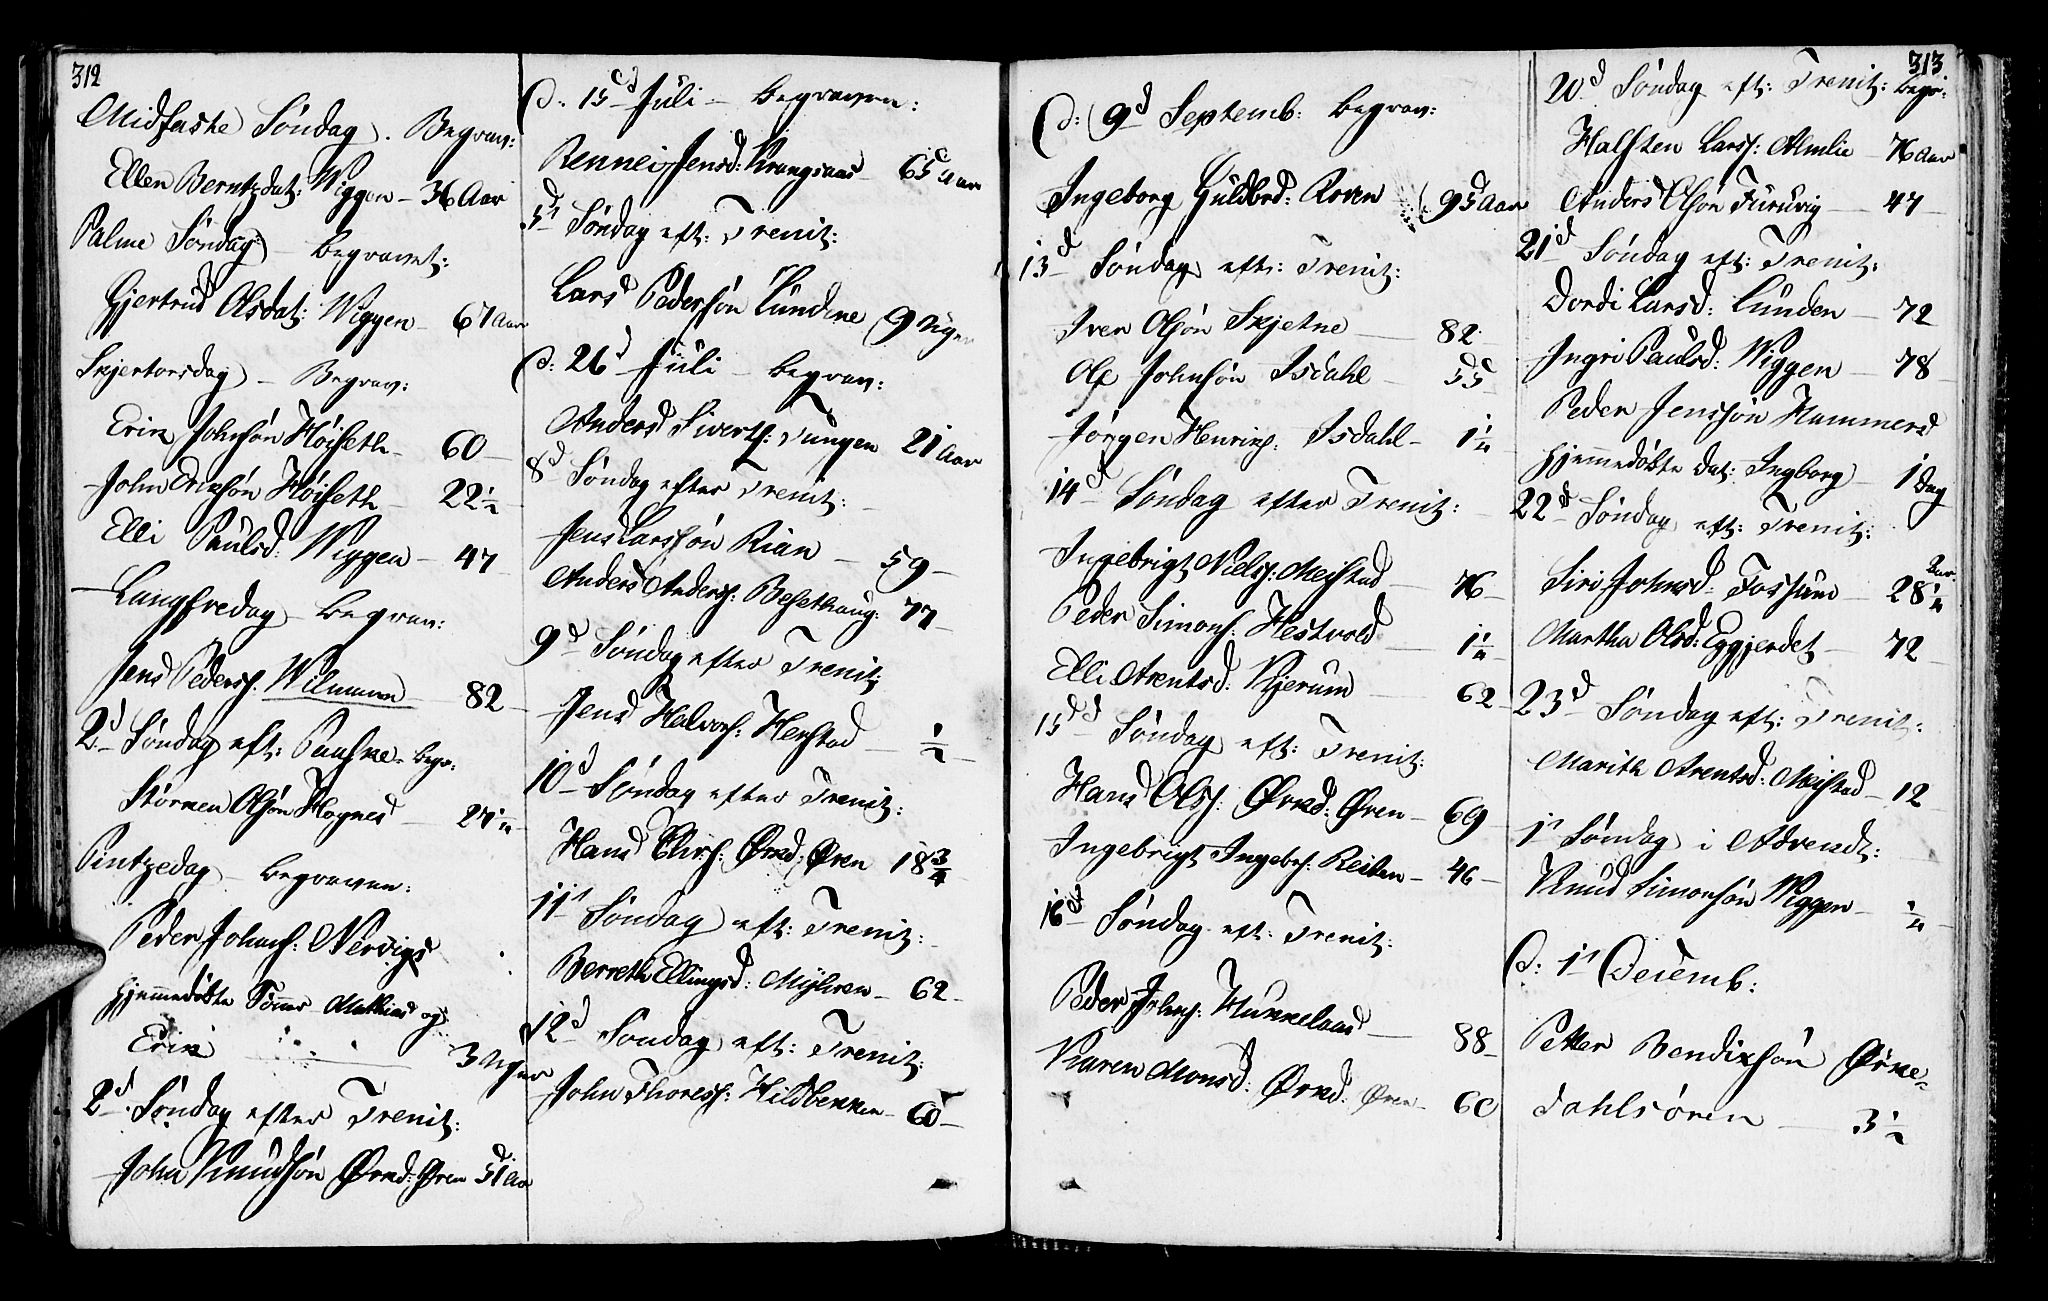 312
Midfaste Søndag. Begrav:
Ellen Berntzdat: Wiggen – 36 Aar
Palme Søndag – begravet:
Gjertrud Olsdat: Wiggen – 67 Aar
Skjertorsdag – Begrav:
Erik Johnsøn Høiseth – 60 –
John Eriksøn Høiseth – 22 1/2
Elli Paulsd: Wiggen – 47
Langfredag – begrav:
Jens Peders: Wilmann – 82
2d Søndag eft: Paaske – begr:
Størker Olsøn Hognes – 27 1/4
Pintzedag – begraven:
Peder Johns: Nervigs
hjemmedøbte Sønner Mathias og
Erik – 3 Uger
2d Søndag efter Trenit:
John Knudsøn Ørkd: Øren 51 Aar
D: 15d Juli – begraven:
Rennei Jensd: Krangsaas – 65 Aar
5t Søndag eft: Trenit:
Lars Pedersøn Lundene 9 Uger
D: 26d Juli – begrav:
Anders Siverts: Tungen 21 Aar
8d Søndag efter Trenit:
Jens Larssøn Rian – 59 –
Anders Anders: Besethaug: 77 –
9d Søndag efter Trenit:
Jens Halvors: Herstad – 1/2
10d Søndag efter Trenit:
Hans Elirs: Ørkd: Øren 18 3/4
11t Søndag eft: Trenit:
Berreth Ellingsd: Myhren – 62 –
12d Søndag eft: Trenit:
John Thores: Hildbekken – 60 –
D: 9d Septemb: begrav:
Ingeborg Guldbrd: Roven 95 Aar
13d Søndag eft: Trenit:
Iver Olsøn Skjetne – 82
Ole Johnsøn Isdahl – 55
Jørgen Henriks: Isdahl – 1 1/4
14d Søndag efter Trenit:
Ingebrigt Niels: Meistad – 76 –
Peder Simons: Hestvold – 1 1/4
Elli Arentsd: Kjerum – 62
15d Søndag eft: Trenit:
Hans Ols: Ørkd: Øren – 69
Ingebrigt Ingebrs: Reiten – 46 –
16d Søndag eft: Trenit:
Peder Johns: Hukkelaas – 88 –
Karen Monsd: Ørkd: Øren – 60
313
20d Søndag eft: Trenit: begr:
Halsten Lars: Almlie – 76 Aar
Anders Olsøn Furuvig – 47 –
21d Søndag eft: Trenit:
Dordi Larsd: Lunden – 72
Ingri Paulsd: Wiggen – 78
Peder Jenssøn Hammers
hjemmedøbte dat: Ingborg – 1 Dag
22d Søndag eft: Trenit:
Siri Johnsd: Fossum – 28 1/4 Aar
Martha Olsd: Eggjerdet – 72 –
23d Søndag eft: Trenit:
Marith Arentsd: Meistad – 12
1t Søndag i Advendt:
Knud Simonsøn Wiggen – 1/4
D: 1t Decemb:
Petter Bendixsøn Ørke-
dahlsøren – 3 1/2